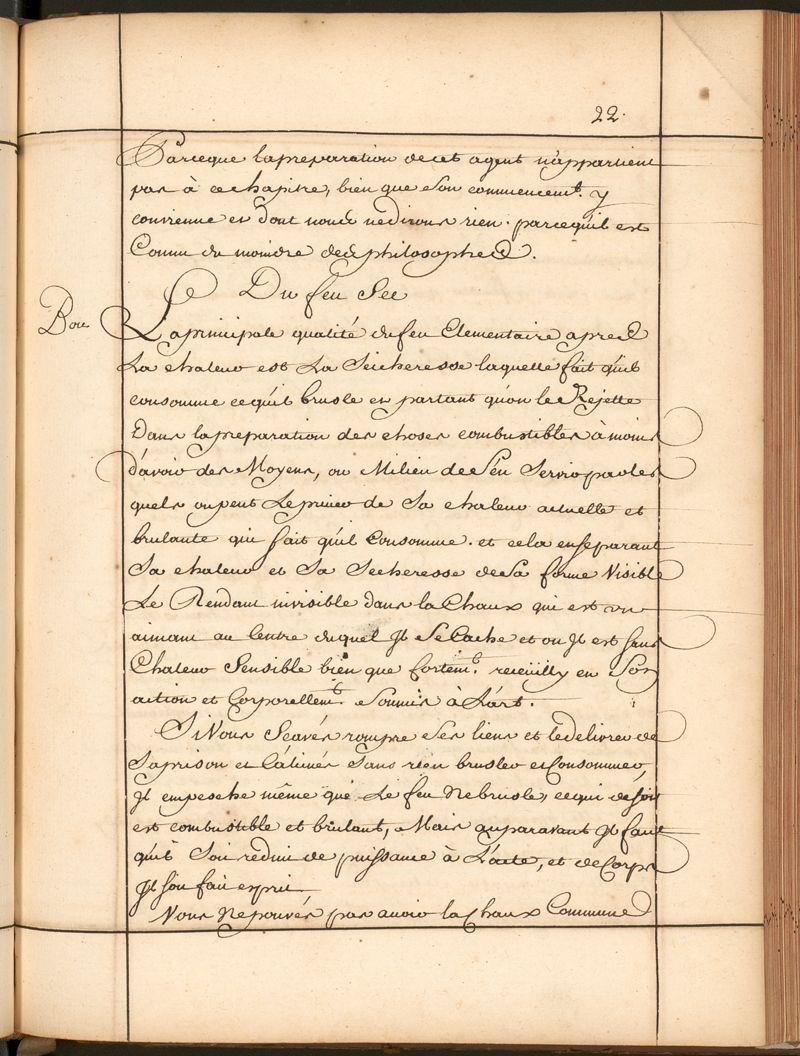 22.
Parceque la preparation de cet agent n'appartient
pas à ce chapitre, bien que son commencemt. y
convienne et dont nous ne dirons rien. parcequ'il est
Connu du moindre des philosophes.
Du feu Sec
Bon
La principale qualité du feu Elementaire apres
La chaleur est La Seicheresse laquelle fait qu'il
consomme ce qu'il brusle en partant qu'on le Rejette
Dans la preparation des choses combustibles à moins
d'avoir des Moyens, ou Milieu de s'en Servir par les
quels on peut Le priver de Sa chaleur actuelle et
brulante qui fait qu'il Consomme. et cela en separant
Sa chaleur et Sa Secheresse de Sa forme Visible
Le Rendant invisible dans la Chaux qui est un
aimant au Centre duquel Jl Se Cache et ou Jl est sans
Chaleur Sensible bien que fortemt. receüilly en Son
action et Corporellemt. Soumis à L'art.
Si Vous Scavés rompre Ses liens et le delivrer de
Sa prison et L'alimés Sans rien brusler et Consommer,
Jl empesche même que Le feu Ne brusle, ce qui de soi
est combustible et brulant, Mais auparavant Jl faut
qu'il Soi reduit de puissance à L'acte, et de Corps
Jl soit fait esprit
Vous Ne pouvés pas avoir la Chaux Commune